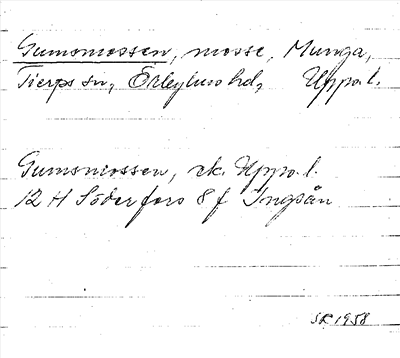 Gumsmossen, mosse, Munga,
Tierps sn, Örbyhus hd, Upps. l.
Gumsmossen, ek. Upps. l.
12 H Söderfors 8 f Ingsån
SR 1958